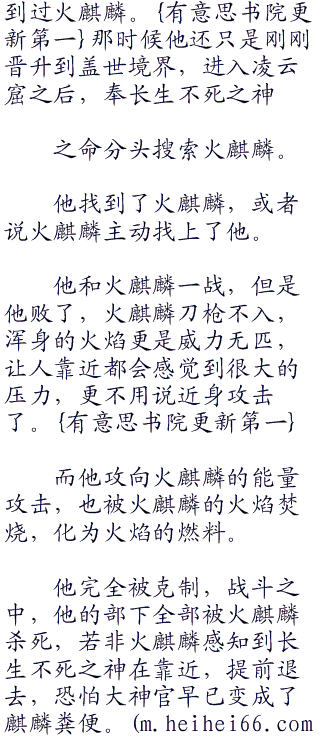 到过火麒麟。{有意思书院更
新第一}那时候他还只是刚刚
晋升到盖世境界，进入凌云
窟之后，奉长生不死之神
之命分头搜索火麒麟。
他找到了火麒麟，或者
说火麒麟主动找上了他。
他和火麒麟一战，但是
他败了，火麒麟刀枪不入，
浑身的火焰更是威力无匹，
让人靠近都会感觉到很大的
压力，更不用说近身攻击
了。{有意思书院更新第一}
而他攻向火麒麟的能量
攻击，也被火麒麟的火焰焚
烧，化为火焰的燃料。
他完全被克制，战斗之
中，他的部下全部被火麒麟
杀死，若非火麒麟感知到长
生不死之神在靠近，提前退
去，恐怕大神官早已变成了
麒麟粪便。(m.heihei66.com